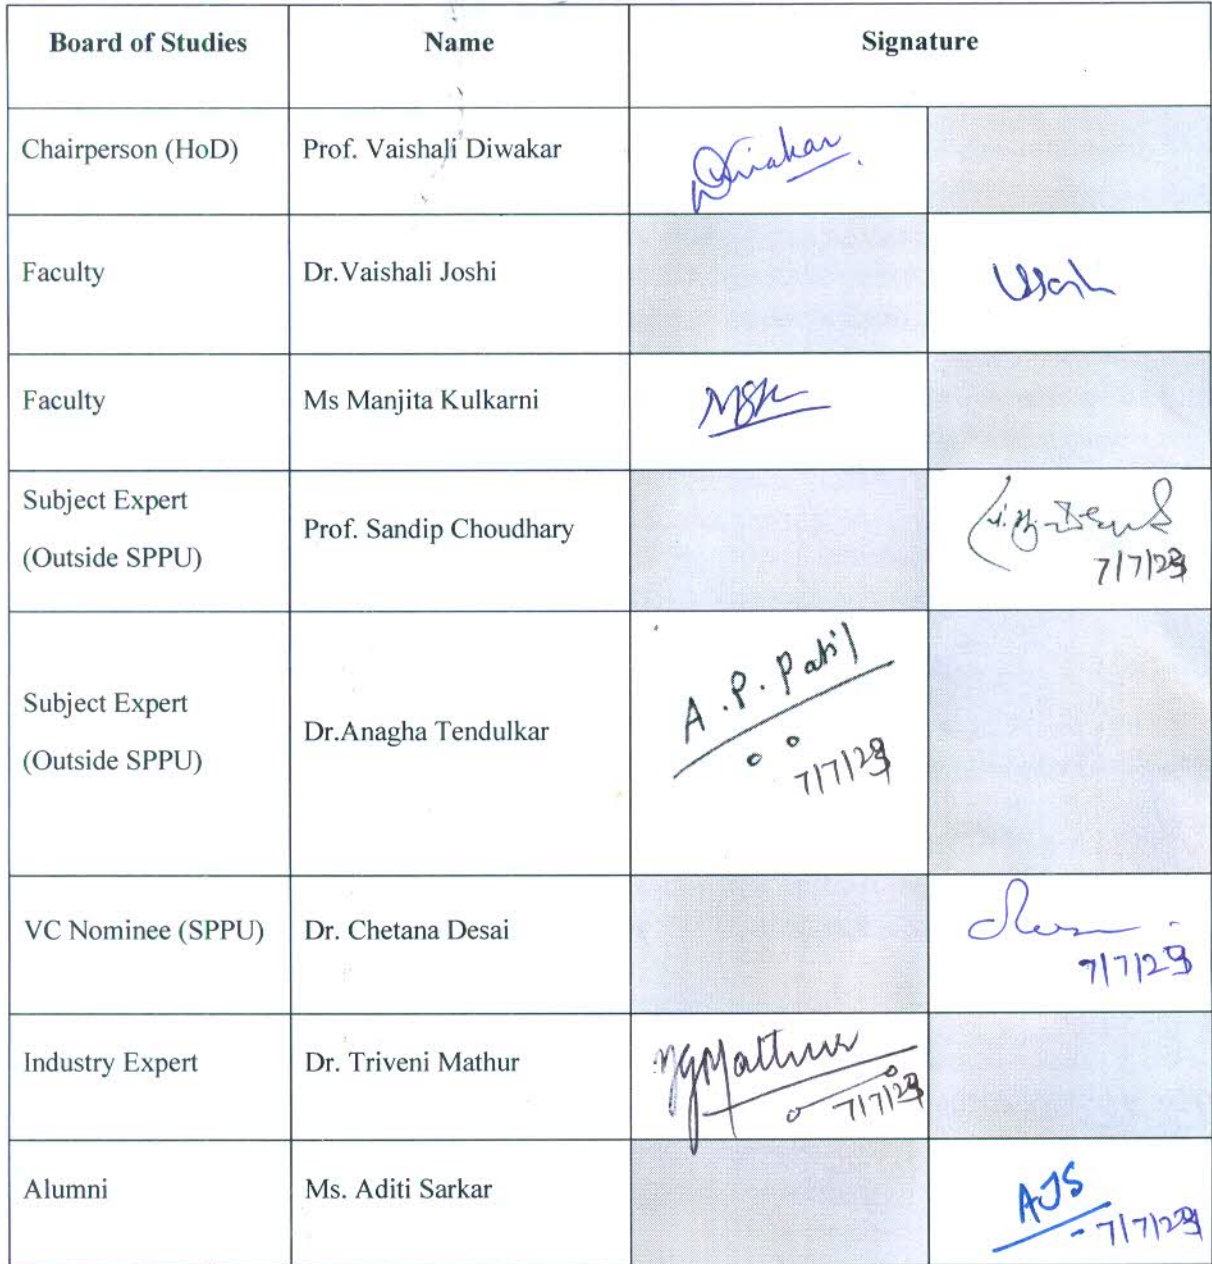 Board of Studies
Name
Signature
Chairperson (HoD)
Prof. Vaishali Diwakar
Diwakar
Faculty
Dr.Vaishali Joshi
Faculty
Ms Manjita Kulkarni
MSK
Subject Expert
(Outside SPPU)
Prof. Sandip Choudhary
7/7/23
Subject Expert
(Outside SPPU)
Dr.Anagha Tendulkar
A.P.Patil
7/7/23
VC Nominee (SPPU)
Dr. Chetana Desai
7/7/23
Industry Expert
Dr. Triveni Mathur
Mathur
7/7/23
Alumni
Ms. Aditi Sarkar
AJS
7/7/23